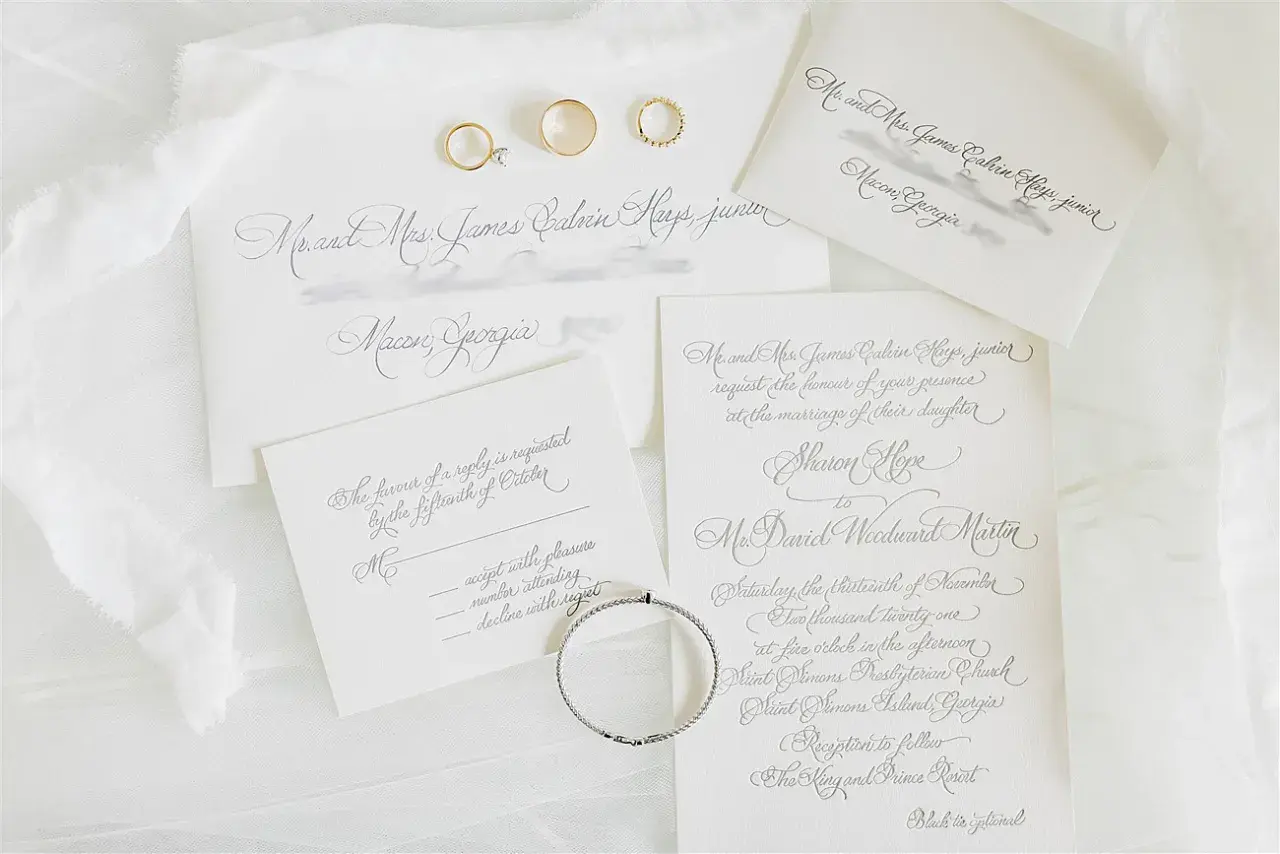 Mr. and Mrs. James Calvin Hays, junior
Macon, Georgia
Mr. and Mrs. James Calvin Hays, junior
Macon, Georgia
The favour of a reply is requested
by the fifteenth of October
M
accept with pleasure
number attending
decline with regret
Mr. and Mrs. James Calvin Hays, junior
request the honour of your presence
at the marriage of their daughter
Sharon Hope
to
Mr. David Woodward Martin
Saturday, the thirteenth of November
Two thousand twenty-one
at five o'clock in the afternoon
Saint Simons Presbyterian Church
Saint Simons Island, Georgia
Reception to follow
The King and Prince Resort
Black tie optional